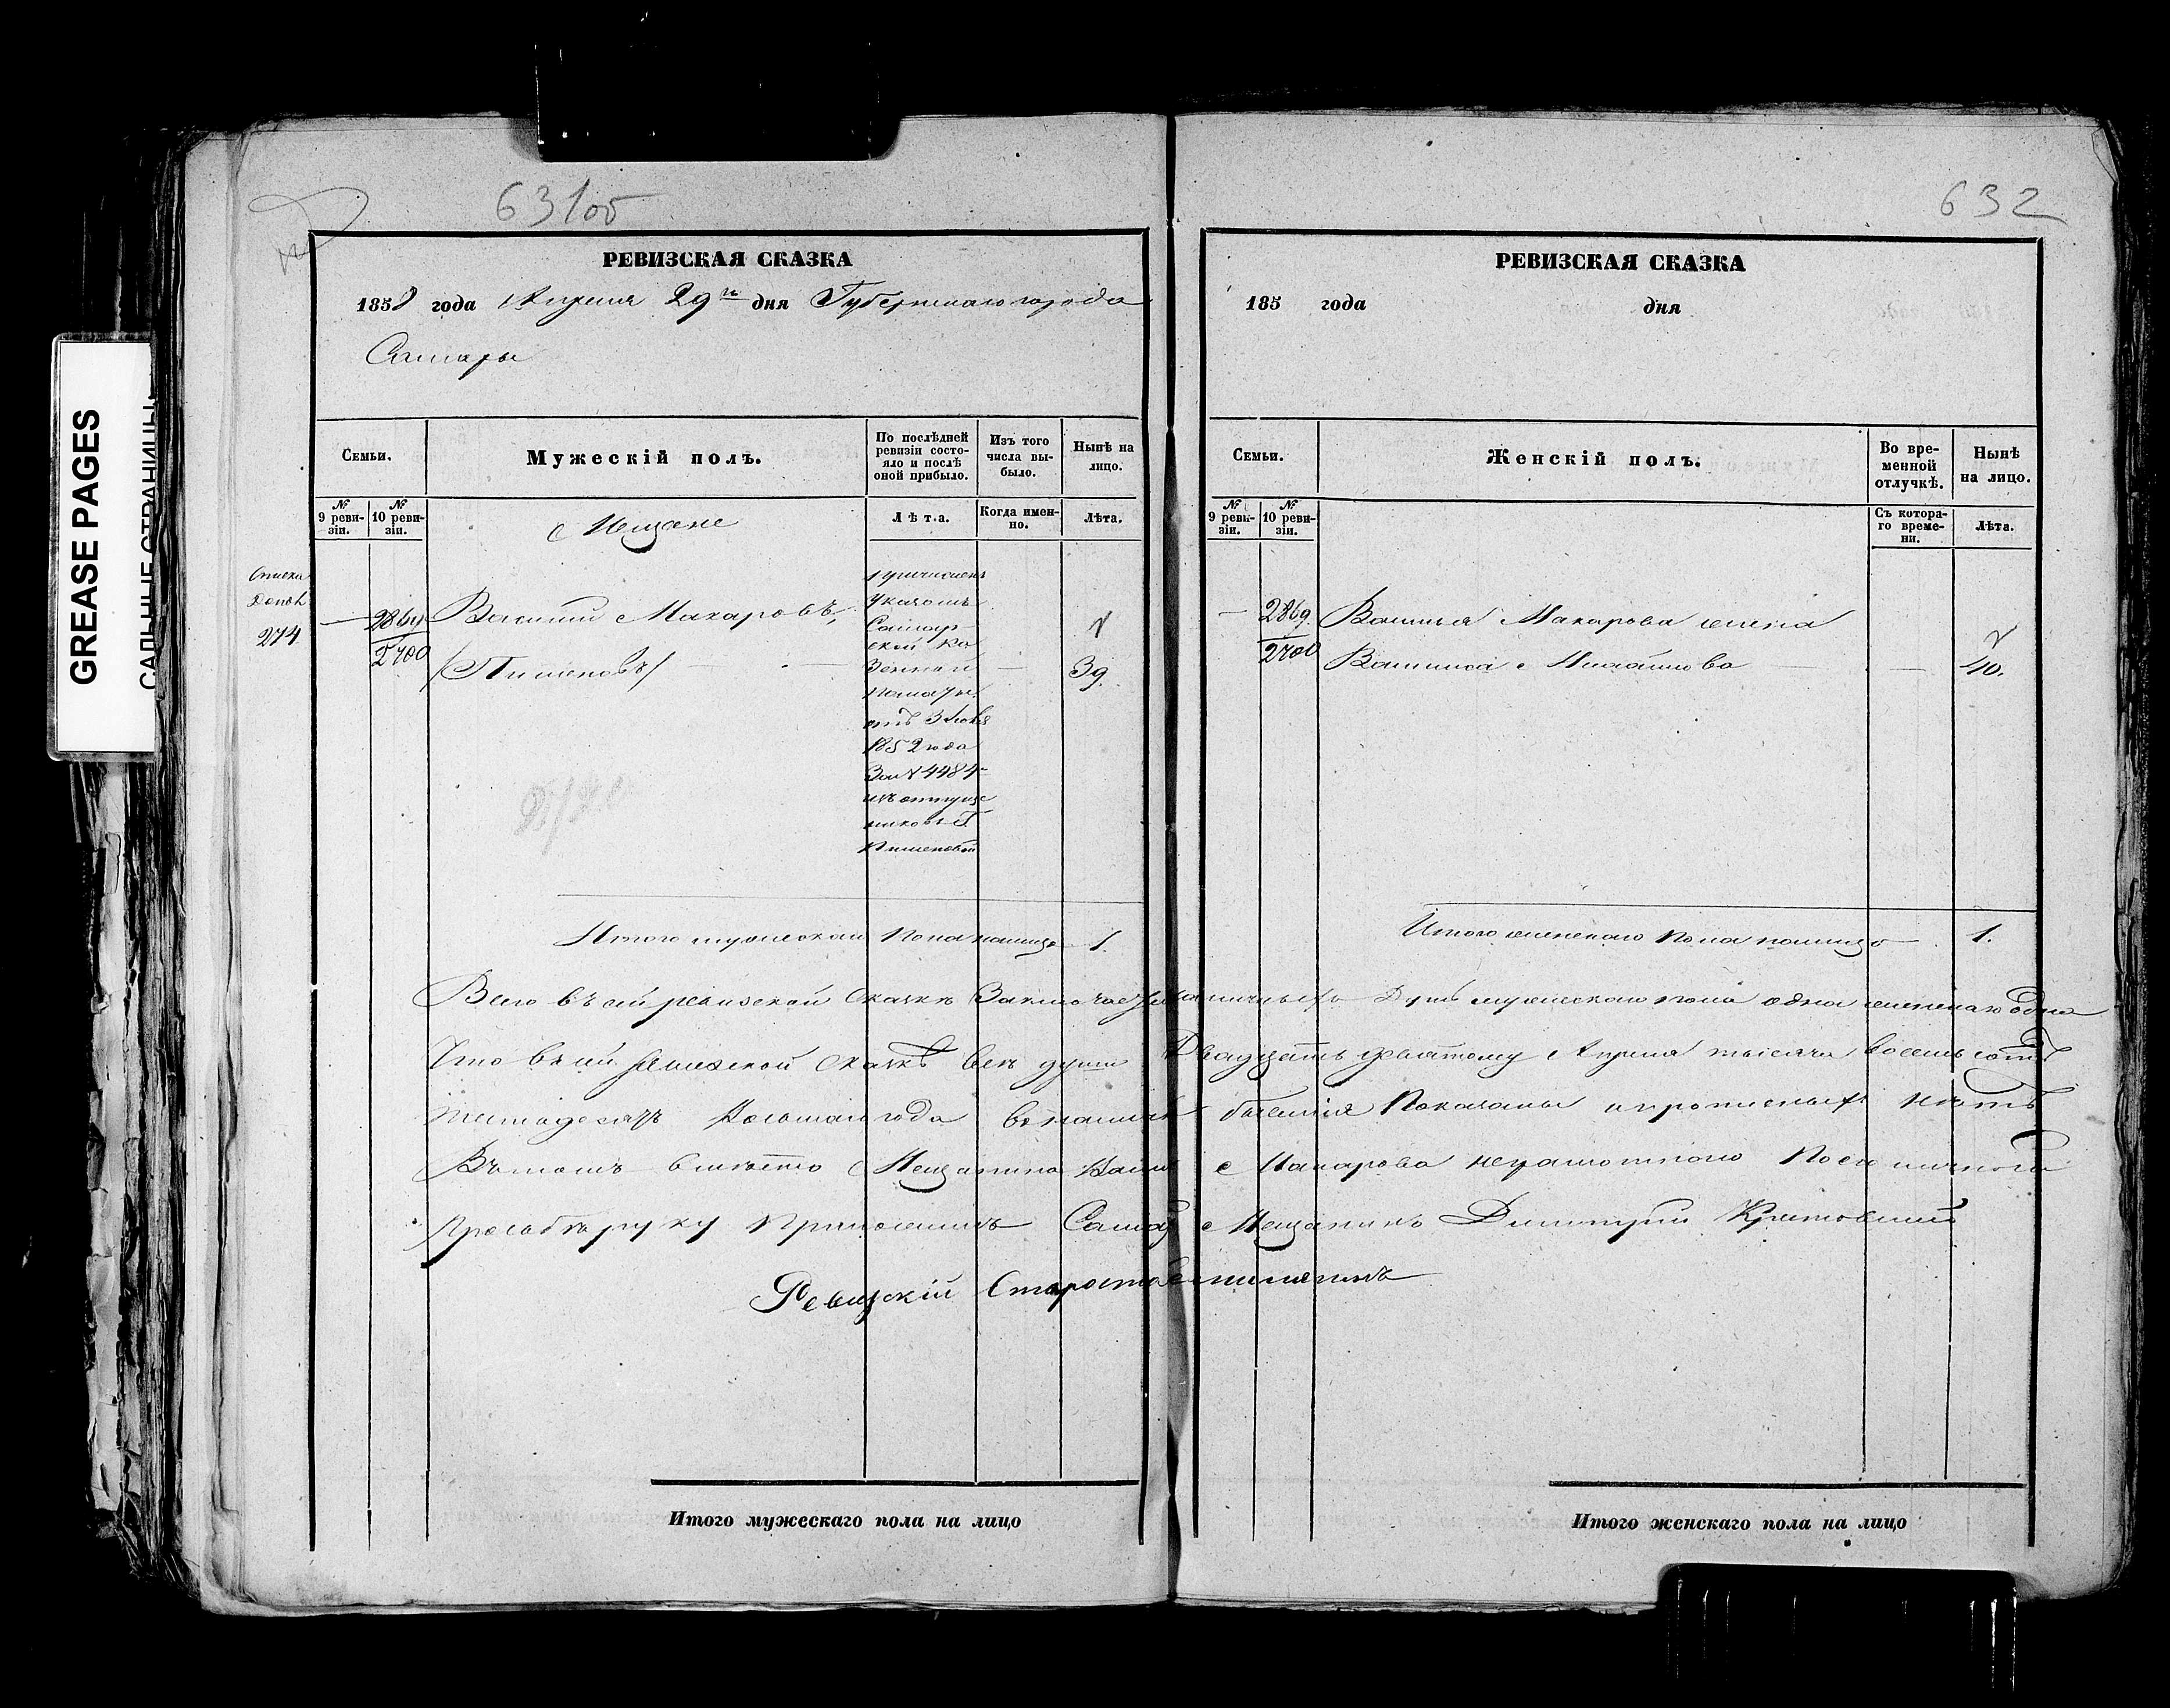 GREASE PAGES
САЛЬНЫЕ СТРАНИЦЫ
631об
РЕВИЗСКАЯ СКАЗКА
1858 года Апреля 29го дня Губернскаго города
Самары
Семьи.
Мужескій полъ.
По послѣдней ревизіи состояло и послѣ оной прибыло.
Изъ того числа выбыло.
Нынѣ на лицо.
№ 9 ревизіи.
№ 10 ревизіи.
Мещане
Лѣта.
Когда именно.
Лѣта.
274
2869
2700
Василий Макаровъ,
/Пименовъ/
причисленъ
Указомъ
Самар
ской Ка
зенной
Палаты
отъ 3 Июня
1852 года
За № 4484
изъ отпуще
никовъ Г.
Пименовой
39.
Итого мужескаго пола налицо 1.
632
РЕВИЗСКАЯ СКАЗКА
185 года дня
Семьи.
Женскій полъ.
Во временной отлучкѣ.
Нынѣ на лицо.
№ 9 ревизіи.
№ 10 ревизіи.
Съ котораго времени.
Лѣта.
2869.
2700
Василья Макарова жена
Василиса Михайлова
40.
Итого женскаго пола налицо 1.
Всего въ сей ревизской сказкѣ Заключается наличныхъ Душъ мужескаго пола одна женскаго одна
Что въ сей Ревизской сказкѣ все души Двадцать девятому Апреля тысяча восемь сотъ
пятидесятъ Восьмаго года въ наличн бытия Показаны и прописныхъ нѣтъ
Въ томъ вместо Мещанина Васил Макарова неграмотного По его личной
Прозбѣ руку Приложилъ Самар Мещанинъ Димитрий
Ревизскій Староста
Итого мужескаго пола на лицо
Итого женскаго пола на лицо